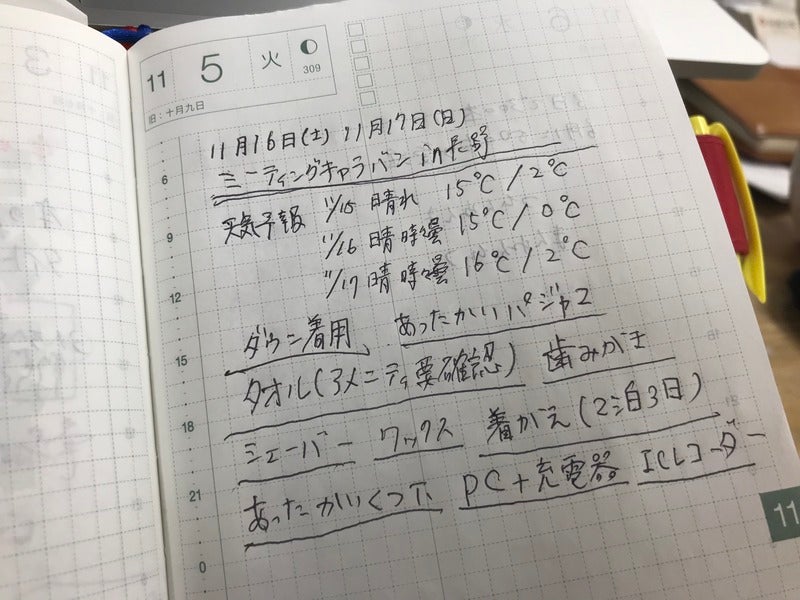 11 5 火
309
旧：十月九日
11月16日(土) 11月17日(日)
ミーティングキャラバン in 長野
天気予報 11/15 晴れ 15℃/2℃
11/16 晴時々曇 15℃/0℃
11/17 晴時々曇 16℃/2℃
ダウン着用、あったかいパジャマ
タオル(アメニティ要確認) 歯みがき
シェーバー ワックス 着がえ(2泊3日)
あったかいくつ下 PC+充電器 ICレコーダー
6
9
12
15
18
21
0
11
3